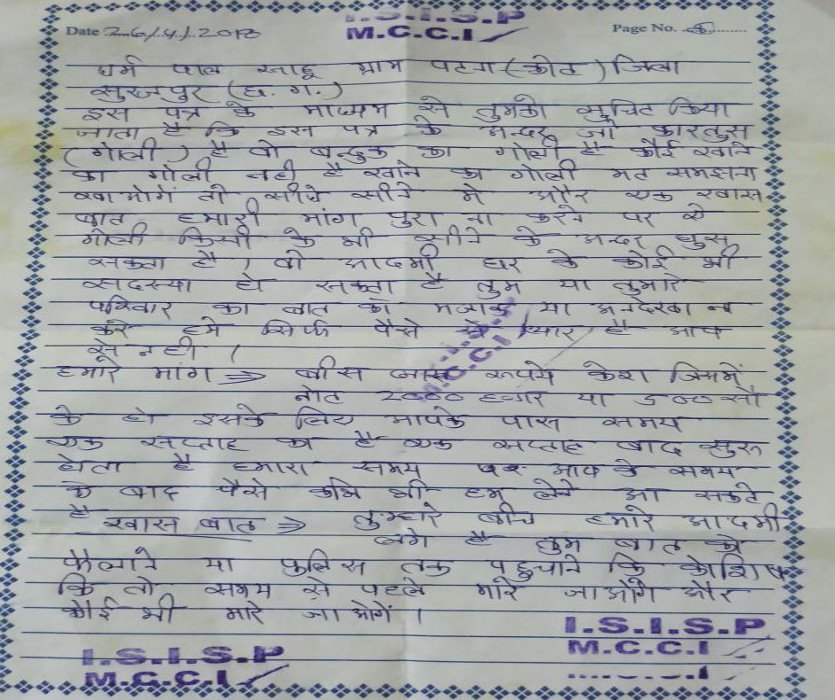 I.S.I.S.P
Date 26/4/2018 M.C.C.I Page No.
धर्म पाल साहू ग्राम पटना (कोट) जिला
सुरजपुर (छ. ग.)
इस पत्र के माध्यम से तुमको सुचित किया
जाता है कि इस पत्र के अन्दर जो कारतुस
(गोली) है वो बन्दुक का गोली है कोई खाने
का गोली नही है खाने का गोली मत समझना
खाओगें तो सीधे सीने मे और एक खास
बात हमारी मांग पुरा ना करने पर ये
गोली किसी के भी सीने के अन्दर घुस
सकता है। वो आदमी घर के कोई भी
सदस्या हो सकता है तुम या तुमारे
परिवार का बात को मजाक या अनदेखा न
करे हमे सिर्फ पैसे से प्यार है आप
से नही।
I.S.I.S.P
M.C.C.I
हमारे मांग ⇒ बीस लाख रूपये केश जिसमें
नोट 2000 हजार या 500 सौ
के हो इसके लिए आपके पास समय
एक सप्ताह का है एक सप्ताह बाद सुरू
होता है हमारा समय पर आप के समय
के बाद पैसे कभि भी हम लेने आ सकते
है खास बात ⇒ तुम्हारे बीच हमारे आदमी
लगे है तुम बात को
फैलाने या पुलिस तक पहुचाने कि कोशिष
कि तो समय से पहले मारे जाओगे और
कोई भी मारे जाओगें।
I.S.I.S.P
M.C.C.I
I.S.I.S.P
M.C.C.I